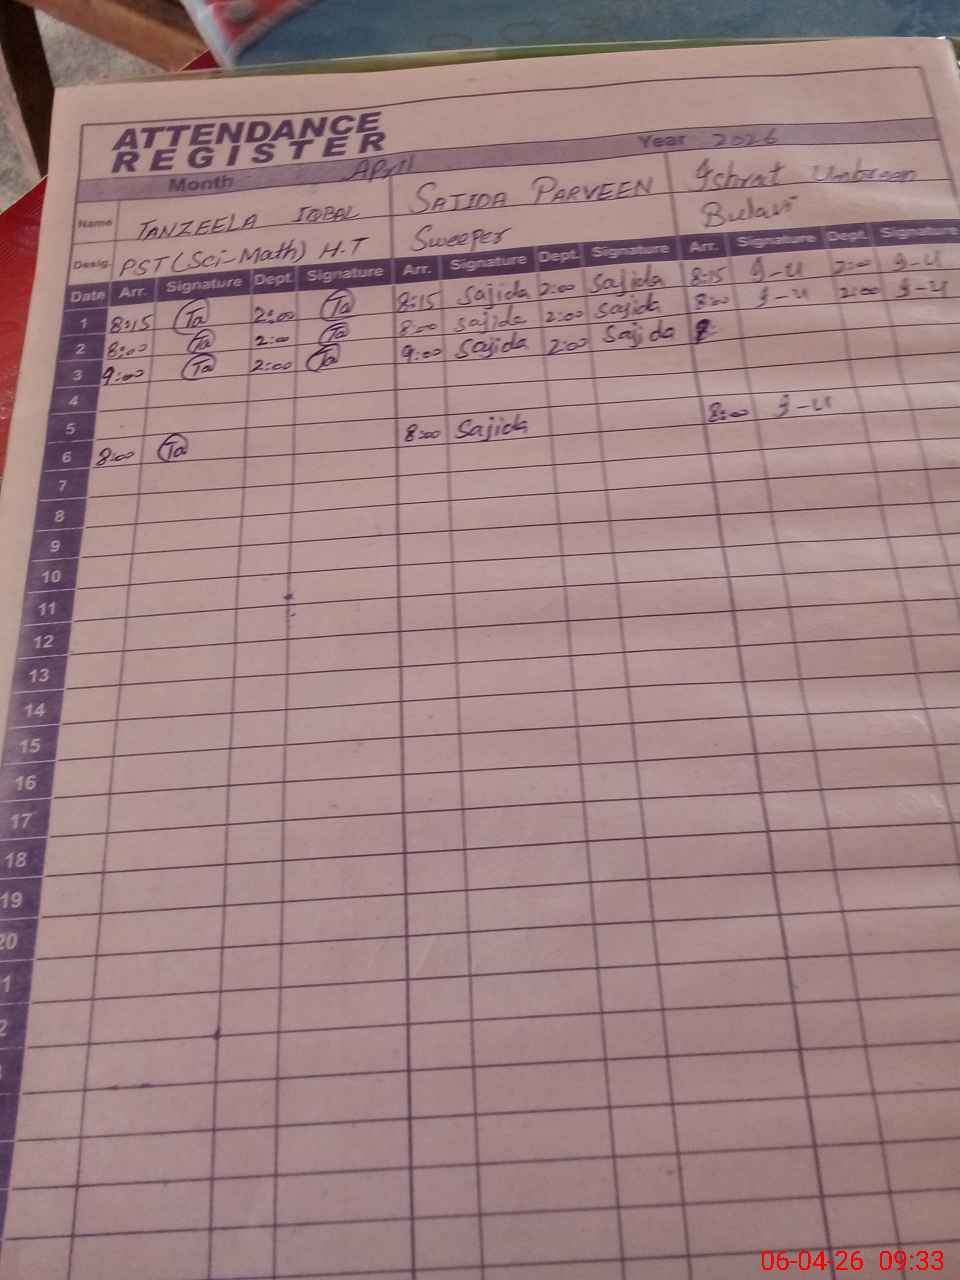 ATTENDANCE
REGISTER
Month April Year 2026
Name TANZEELA IQBAL SAJIDA PARVEEN Ishrat Umbreen
Desig. PST (Sci-Math) H.T Sweeper Bulavi
Date Arr. Signature Dept. Signature Arr. Signature Dept. Signature Arr. Signature Dept. Signature
1 8:15 Ta 2:00 Ta 8:15 Sajida 2:00 Sajida 8:15 I-U 2:00 I-U
2 8:00 Ta 2:00 Ta 8:00 Sajida 2:00 Sajida 8:00 I-U 2:00 I-U
3 9:00 Ta 2:00 Ta 9:00 Sajida 2:00 Sajida
4
5
6 8:00 Ta 8:00 Sajida 8:00 I-U
7
8
9
10
11
12
13
14
15
16
17
18
19
20
1
2
06-04-26 09:33